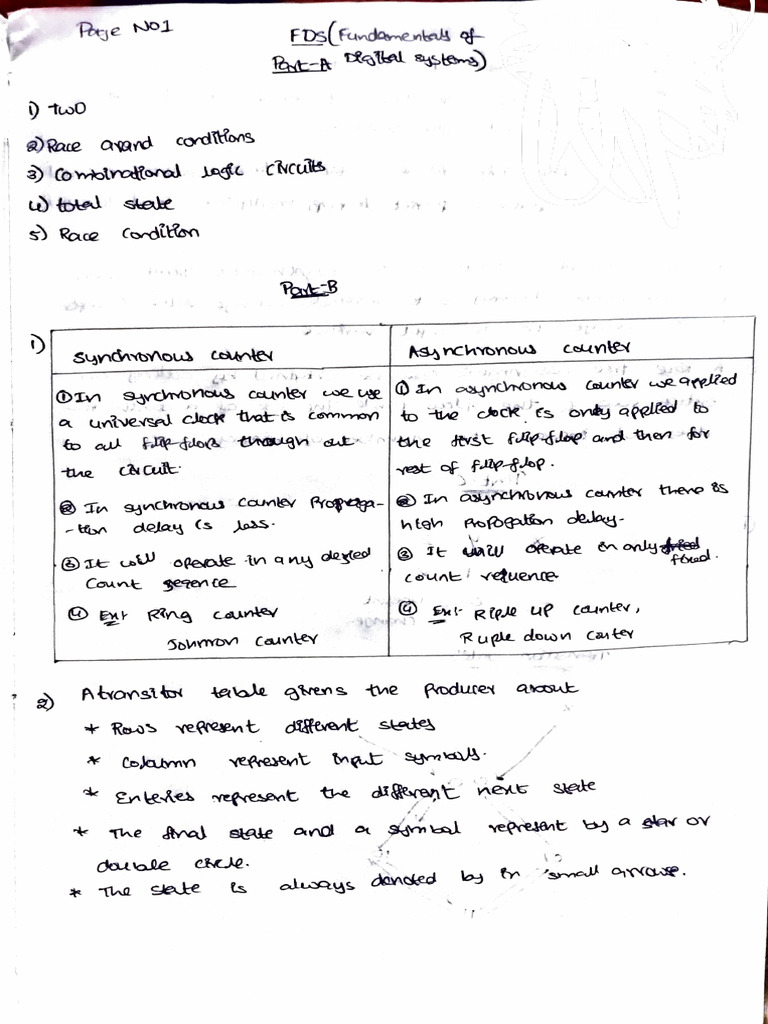 Page No1
FDS (Fundamentals of
Part-A Digital systems)
1) Two
2) Race around conditions
3) Combinational logic circuits
4) total state
5) Race condition
Part-B
1)
Synchronous counter
① In synchronous counter we use
a universal clock that is common
to all flip-flops through out
the circuit.
② In synchronous counter Propaga-
-tion delay is less.
③ It will operate in any desired
Count sequence
④ Ex:- Ring counter
Johnson counter
Asynchronous counter
① In asynchronous counter we applied
to the clock is only applied to
the first flip-flop and then for
rest of flip-flop.
② In asynchronous counter there is
high propogation delay.
③ It will operate in only fixed.
count sequence
④ Ex:- Riple up counter,
Ruple down conter
2) A transitor table givens the Producer about
* Rows represent different states
* Column represent input symbols.
* Enteries represent the different next state
* The final state and a symbol represent by a star or
double circle.
* The state is always denoted by in small arrows.